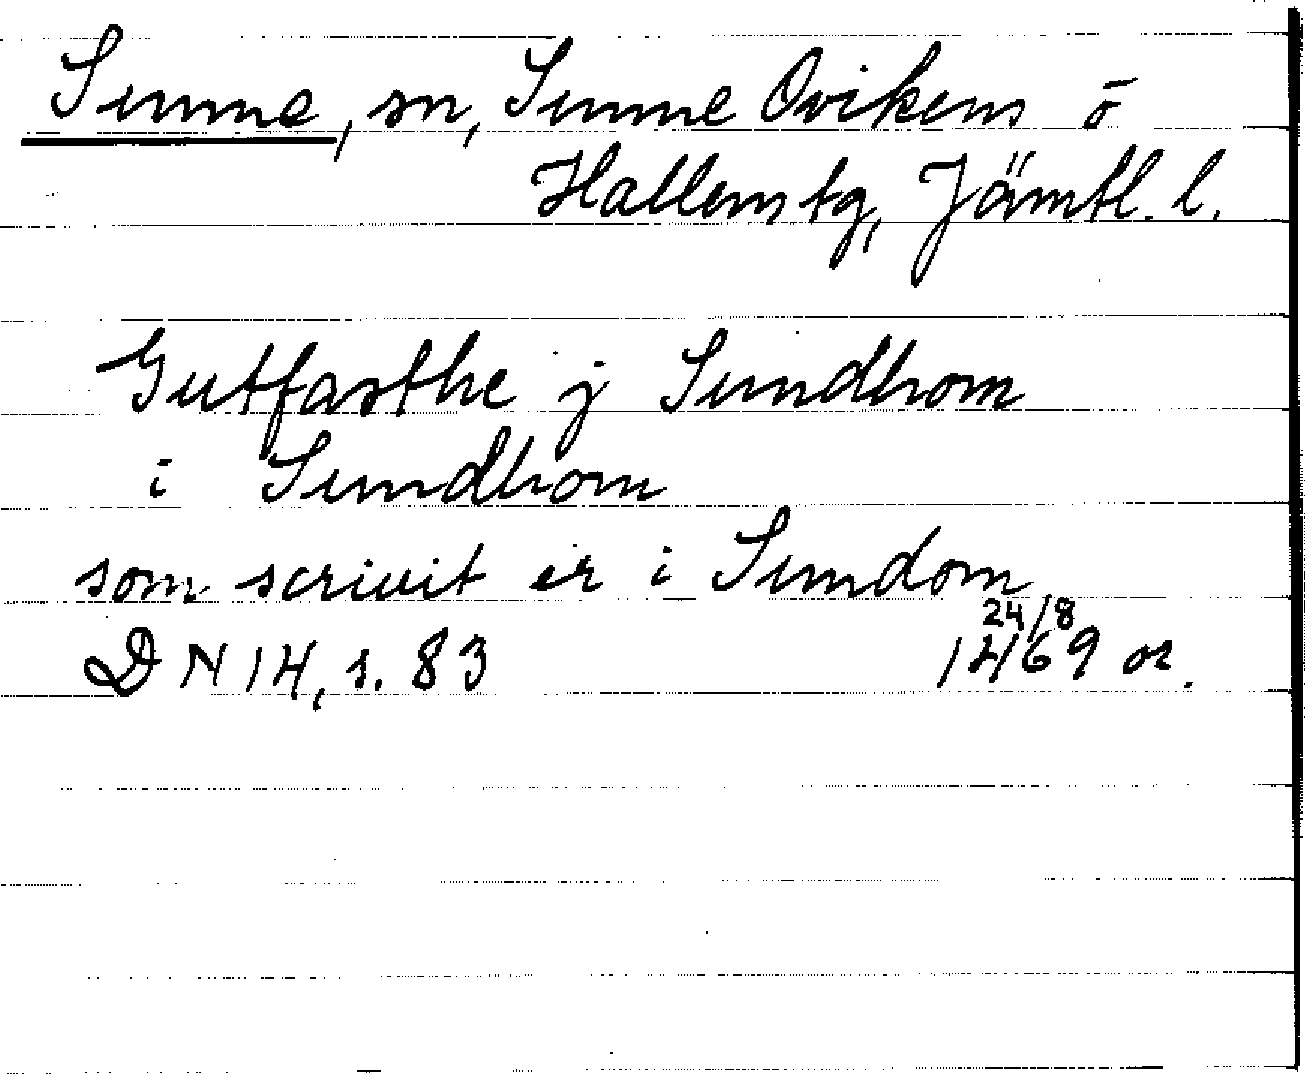 Sunne, sn, Sunne Ovikens o
Hallens tg, Jämtl. l.
Gutfasthe j Sundhom
i Sundhom
som scriuit er i Sundom
24/8
DN 14, s. 83 1469 or.